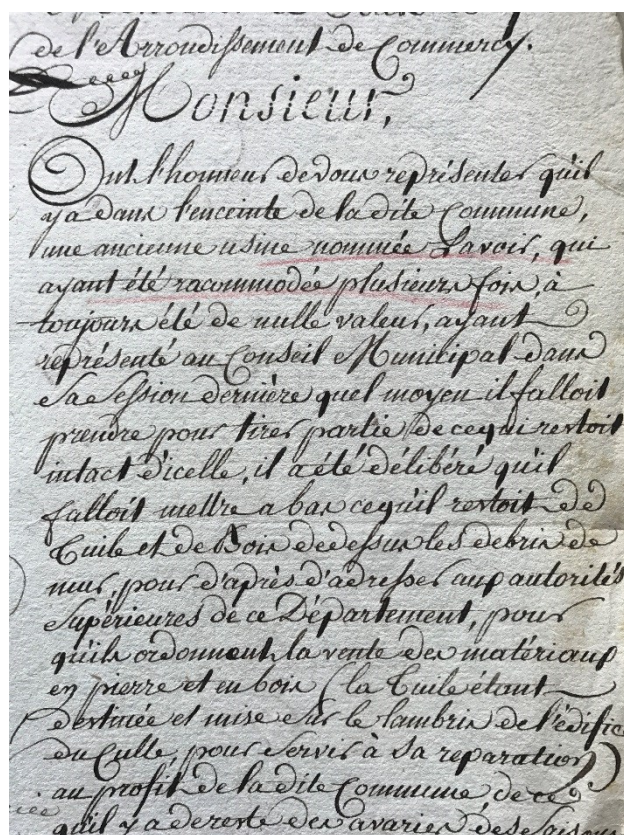 de l'Arrondissement de Commercy.
Monsieur,
Ont l'honneur de vous représenter qu'il
y a dans l'enceinte de la dite Commune,
une ancienne usine nommée Lavoir, qui
ayant été racommodée plusieurs fois, à
toujours été de nulle valeur, ayant
représenté au Conseil Municipal dans
sa session dernière quel moyen il falloit
prendre pour tirer partie de ce qui restoit
intact d'icelle, il a été délibéré qu'il
falloit mettre a bas ce qu'il restoit de
Tuile et de Bois de dessus les debris de
mur, pour d'après s'adresser aux autorités
supérieures de ce Département, pour
qu'ils ordonnent la vente des matériaux
en pierre et en bois (la Tuile étant
destinée et mise sur le lambris de l'édifice
du Culte, pour servir à sa reparation)
au profit de la dite Commune de ce
qu'il y a de reste des avaries de